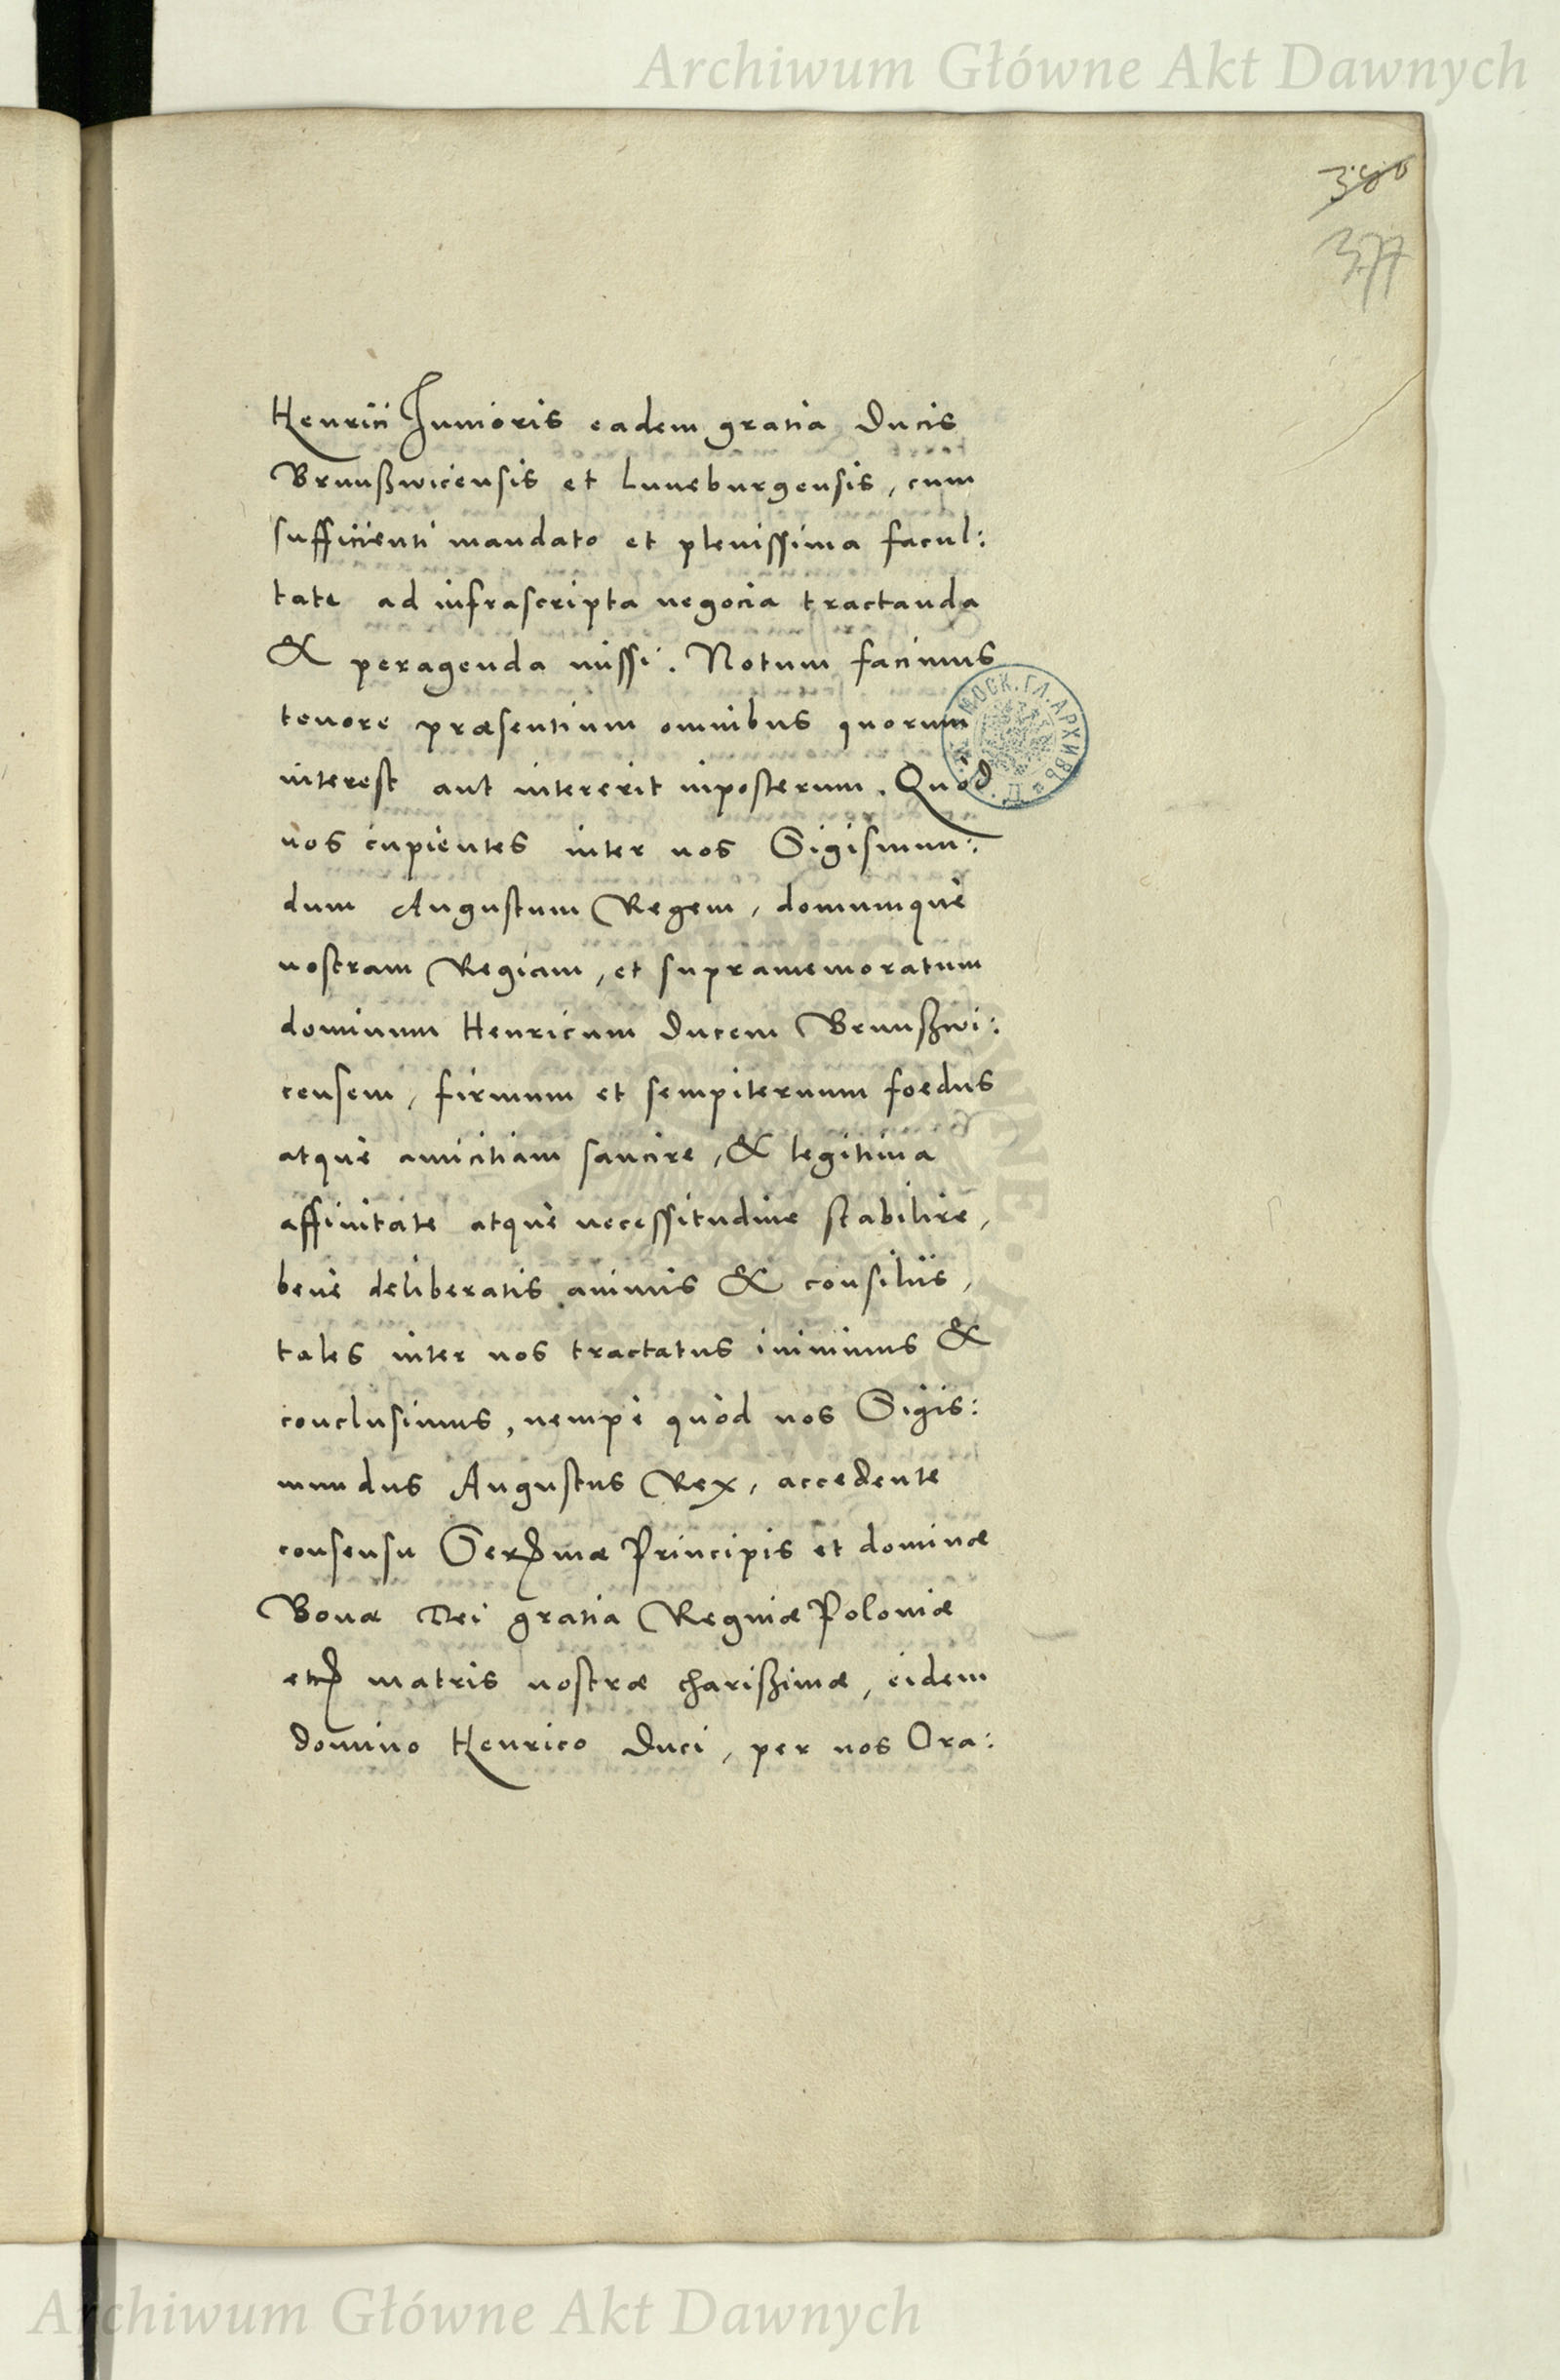 Archiwum Główne Akt Dawnych
386
377
Henrici Junioris eadem gratia Ducis
Brunßwicensis et Luneburgensis, cum
sufficienti mandato et plenissima facul:
tate ad infrascripta negocia tractanda
& peragenda missi. Notum facimus
tenore præsentium omnibus quorum
interest aut intererit inposterum. Quod
nos cupientes inter nos Sigismun:
dum Augustum Regem, domumque
nostram Regiam, et supramemoratum
dominum Henricum Ducem Brunßwi:
censem, firmum et sempiternum foedus
atque amicitiam sancire, & legitima
affinitate atque necessitudine stabilire,
bene deliberatis animis & consiliis,
tales inter nos tractatus inivimus &
conclusimus, nempe quòd nos Sigis:
mundus Augustus Rex, accedente
consensu Sermæ Principis et dominæ
Bonæ Dei gratia Reginæ Poloniæ
etc matris nostræ charißimæ, eidem
domino Henrico Duci, per nos Ora:
МОСК. ГЛ. АРХИВЪ
Archiwum Główne Akt Dawnych